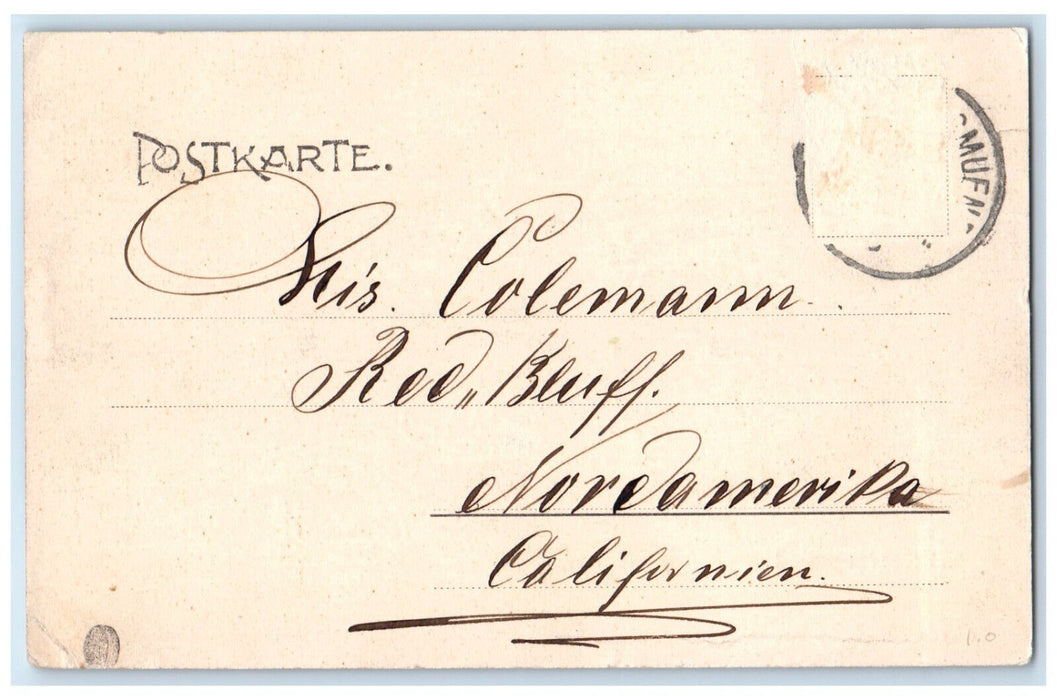 POSTKARTE.
Mis. Colemann.
Red„ Bluff.
Nordamerika
Californien.
1.0